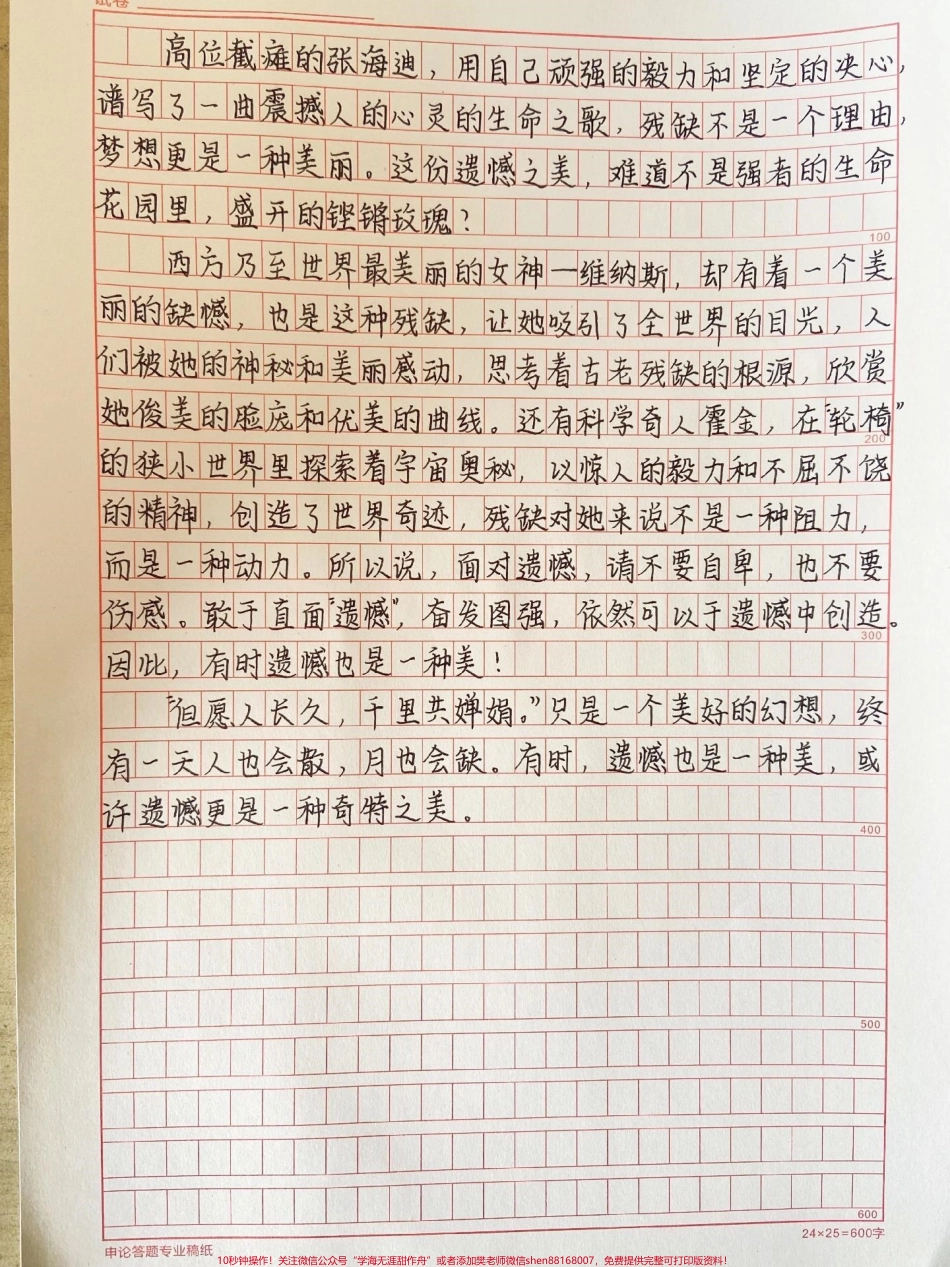 试卷
高位截瘫的张海迪，用自己顽强的毅力和坚定的决心，
谱写了一曲震撼人的心灵的生命之歌，残缺不是一个理由，
梦想更是一种美丽。这份遗憾之美，难道不是强者的生命
花园里，盛开的铿锵玫瑰？
100
西方乃至世界最美丽的女神—维纳斯，却有着一个美
丽的缺憾，也是这种残缺，让她吸引了全世界的目光，人
们被她的神秘和美丽感动，思考着古老残缺的根源，欣赏
她俊美的脸庞和优美的曲线。还有科学奇人霍金，在“轮椅”
200
的狭小世界里探索着宇宙奥秘，以惊人的毅力和不屈不饶
的精神，创造了世界奇迹，残缺对她来说不是一种阻力，
而是一种动力。所以说，面对遗憾，请不要自卑，也不要
伤感。敢于直面“遗憾”，奋发图强，依然可以于遗憾中创造。
300
因此，有时遗憾也是一种美！
“但愿人长久，千里共婵娟。”只是一个美好的幻想，终
有一天人也会散，月也会缺。有时，遗憾也是一种美，或
许遗憾更是一种奇特之美。
400
500
600
24×25=600字
申论答题专业稿纸
10秒钟操作！关注微信公众号“学海无涯甜作舟”或者添加樊老师微信shen88168007，免费提供完整可打印版资料！